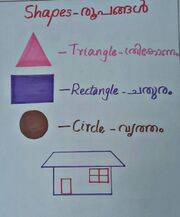 Shapes-രൂപങ്ങൾ
-Triangle-ത്രികോണം
-Rectangle-ചതുരം
-Circle-വൃത്തം